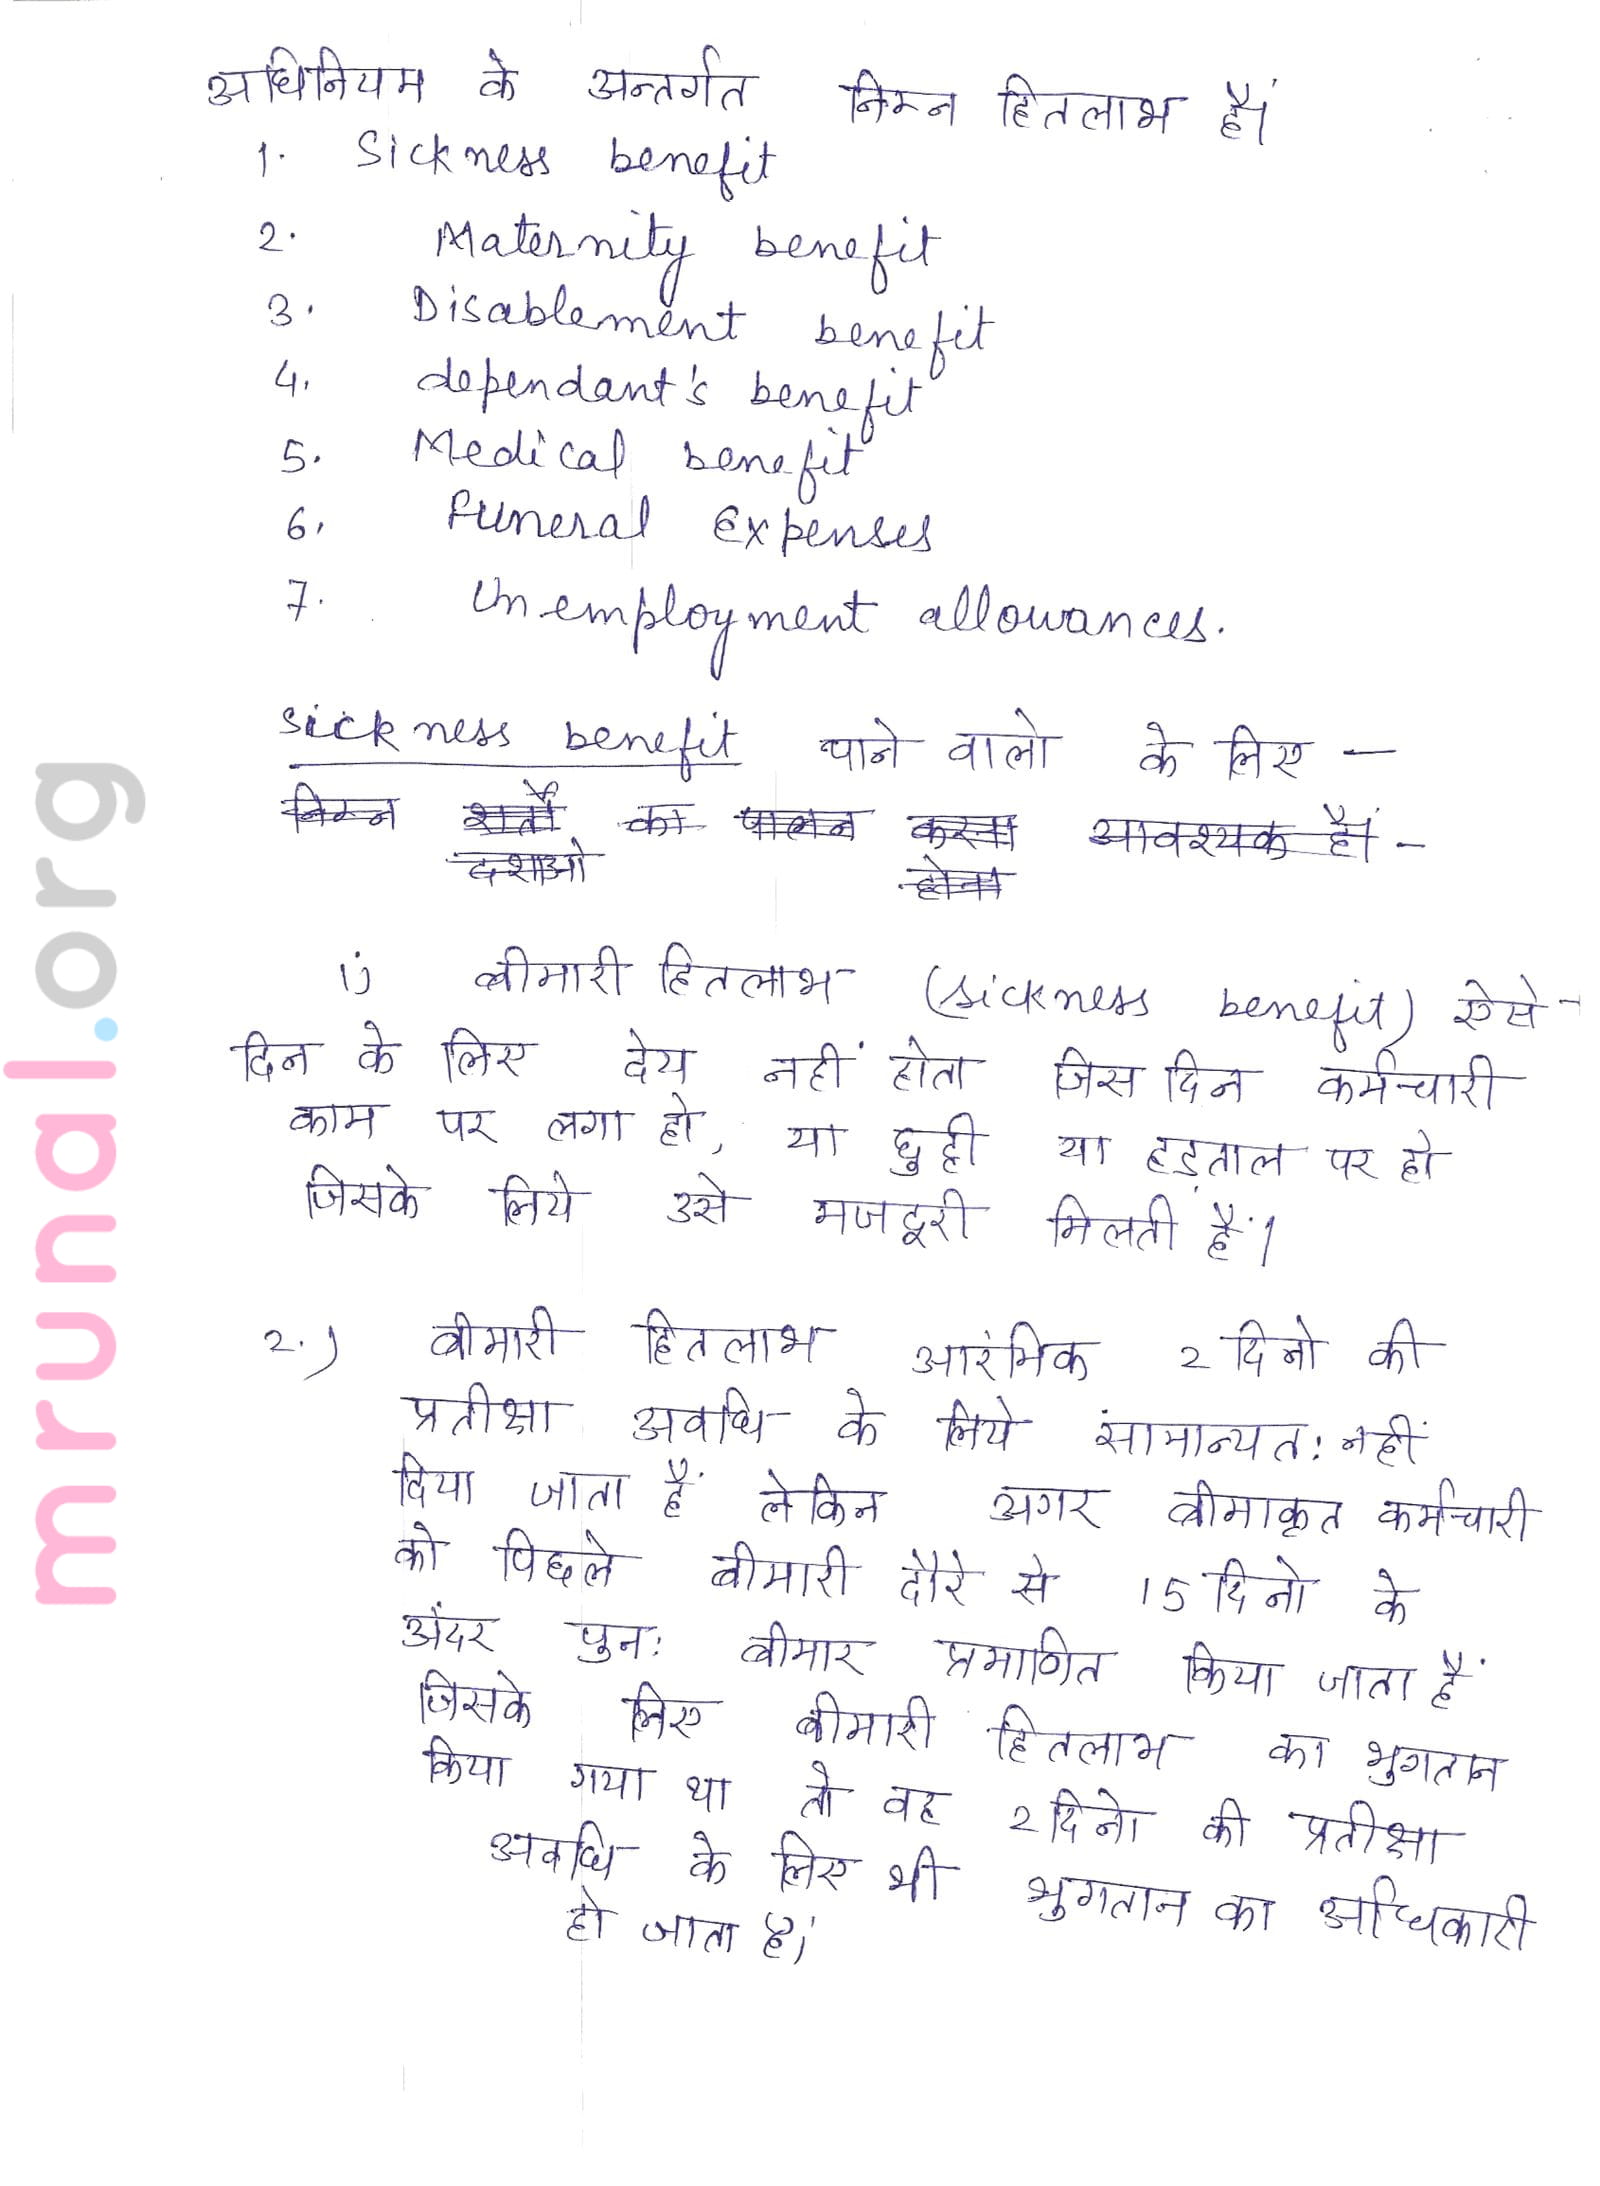 अधिनियम के अन्तर्गत निम्न हितलाभ हैं।
1. Sickness benefit
2. Maternity benefit
3. Disablement benefit
4. dependant's benefit
5. Medical benefit
6. Funeral Expenses
7. Unemployment allowances.
Sickness benefit पाने वालो के लिए —
निम्न शर्तों का पालन करना आवश्यक हैं। -
दशाओ होना
1) बीमारी हितलाभ (sickness benefit) ऐसे -
दिन के लिए देय नहीं होता जिस दिन कर्मचारी
काम पर लगा हो, या छुट्टी या हड़ताल पर हो
जिसके लिये उसे मजदूरी मिलती हैं।
2.) बीमारी हितलाभ आरंभिक 2 दिनो की
प्रतीक्षा अवधि के लिये सामान्यतः नहीं
दिया जाता हैं लेकिन अगर बीमाकृत कर्मचारी
को पिछले बीमारी दौरे से 15 दिनो के
अंदर पुनः बीमार प्रमाणित किया जाता हैं
जिसके लिए बीमारी हितलाभ का भुगतान
किया गया था तो वह 2 दिनो की प्रतीक्षा
अवधि के लिए भी भुगतान का अधिकारी
हो जाता हैं।
mrunal.org